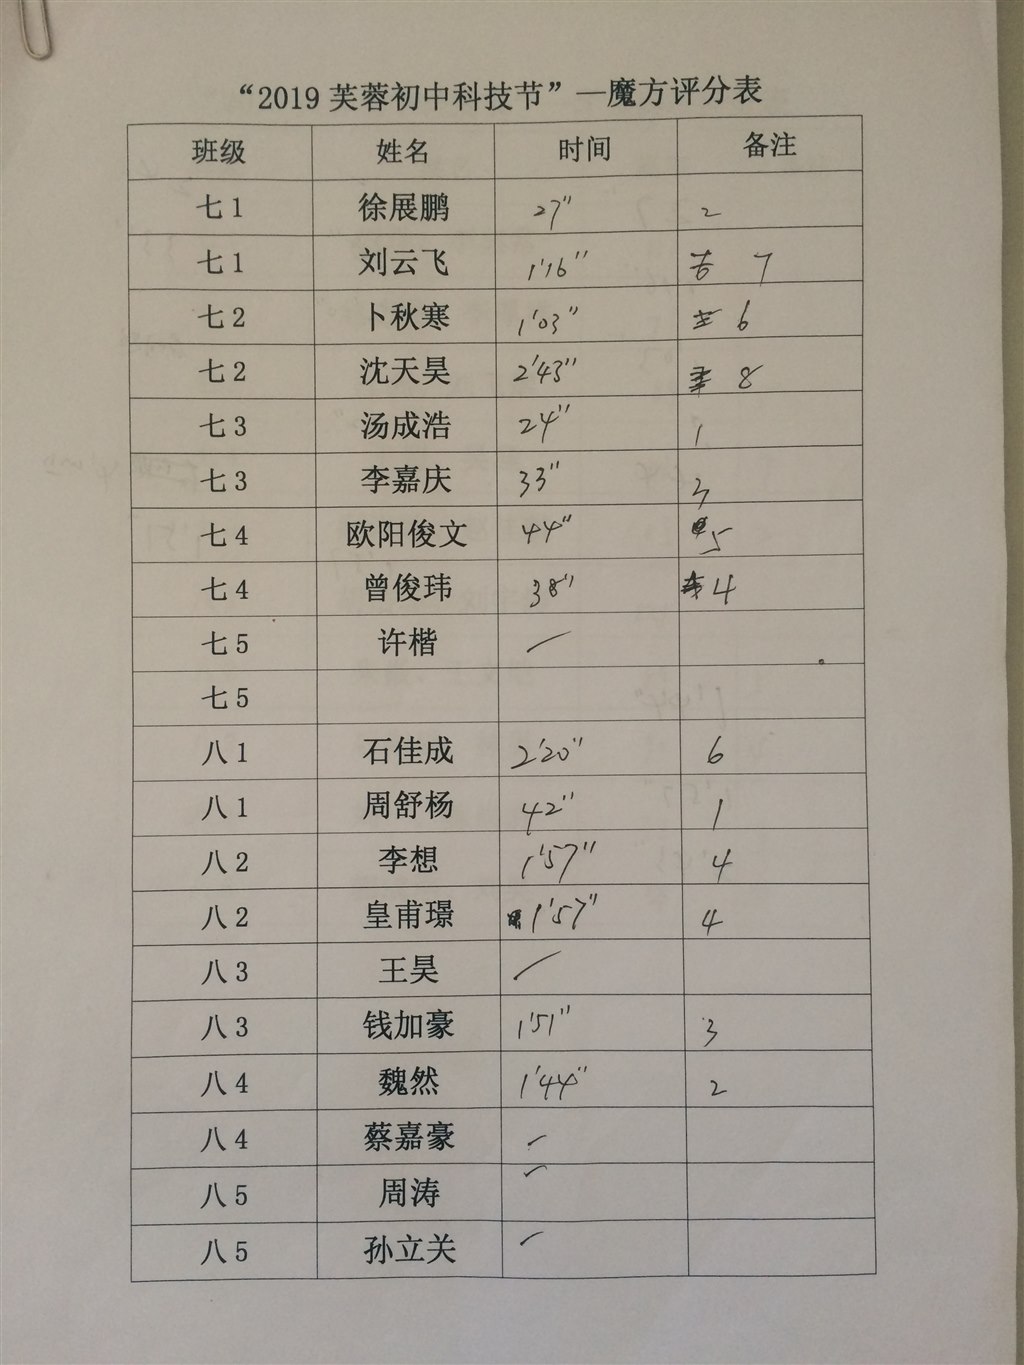 “2019芙蓉初中科技节”—魔方评分表
班级 姓名 时间 备注
七1 徐展鹏 27" 2
七1 刘云飞 1'16" 7
七2 卜秋寒 1'03" 6
七2 沈天昊 2'43" 8
七3 汤成浩 24" 1
七3 李嘉庆 33" 3
七4 欧阳俊文 44" 5
七4 曾俊玮 38" 4
七5 许楷
七5
八1 石佳成 2'20" 6
八1 周舒杨 42" 1
八2 李想 1'57" 4
八2 皇甫璟 1'57" 4
八3 王昊
八3 钱加豪 1'51" 3
八4 魏然 1'44" 2
八4 蔡嘉豪
八5 周涛
八5 孙立关